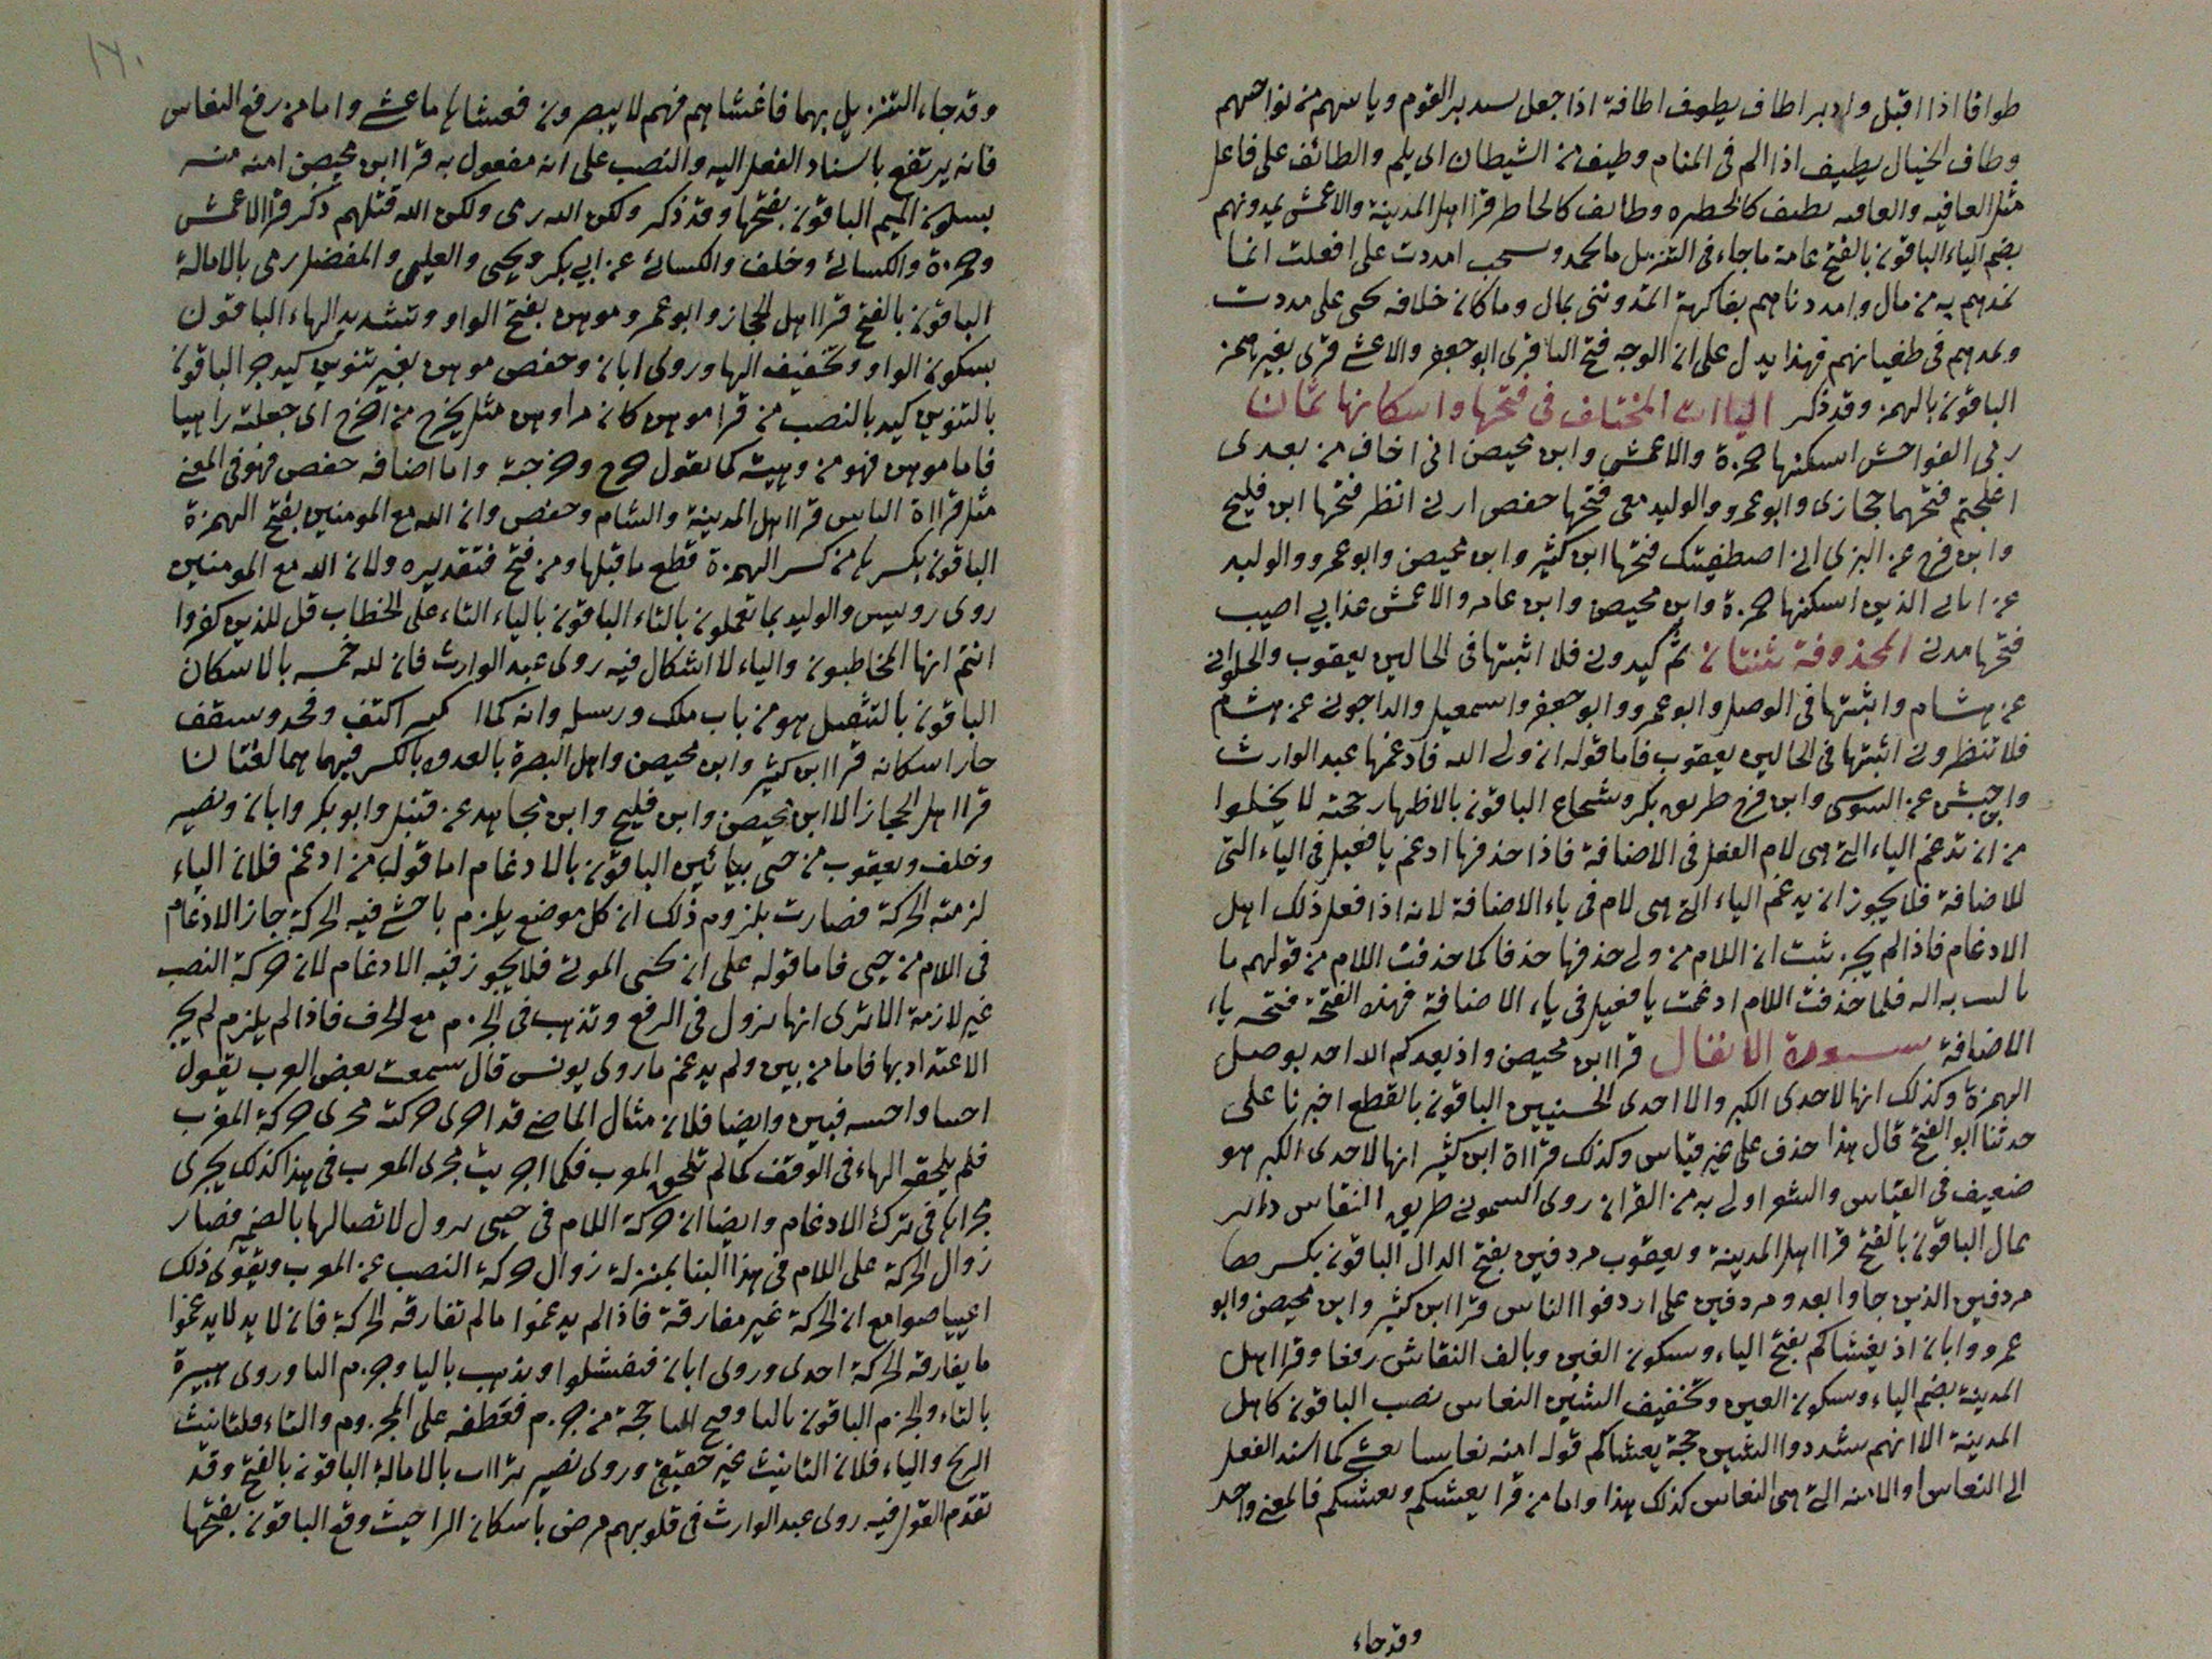 طوافا اذا اقبل وادبر اطاف يطوف اطافة اذا جعل يستدير القوم وياتيهم من نواحيهم
وطاف الخيال يطيف اذا الم فى المنام وطيف من الشيطان اى يلم والطائف على فاعل
مثل العافيه والعاقبه يطيف كالخطره وطايف كالخاطر قرا اهل المدينة والاعمش يمدونهم
بضم الياء الباقون بالفتح عامة ما جاء فى التنزيل مما يحمد ويستحب امددت على افعلت انما
نمدهم به من مال وامددناهم بفاكهة اتمدوننى بمال وما كان خلافه يجى على مددت
ويمدهم فى طغيانهم فهذا يدل على ان الوجه فتح اليا قرى ابو جعفر والاعشى قرى بغير همز
الباقون بالهمز وقد ذكر الياات المختلف فى فتحها واسكانها ثمان
ربى الفواحش اسكنها حمزة والاعمش وابن محيصن انى اخاف من بعدى
اعجلتم فتحهما حجازى وابو عمرو والوليد معى فتحها حفص ارنى انظر فتحها ابن فليح
وابن فرح عن البزى انى اصطفيتك فتحها ابن كثير وابن محيصن وابو عمرو والوليد
عن اياتى الذين اسكنها حمزة وابن محيصن وابن عامر والاعمش عذابي اصيب
فتحها مدنى المحذوفة ثنتان ثم كيدونى فلا اثبتها فى الحالين يعقوب والحلوانى
عن هشام واثبتها فى الوصل ابو عمرو وابو جعفر واسمعيل والداجونى عن هشام
فلا تنظرونى اثبتها فى الحالين يعقوب فاما قوله ان ولى الله فادغمها عبد الوارث
وابن حبش عن السوسى وابن فرح طريق بكر وشجاع الباقون بالاظهار حجته لا يخلوا
من ان تدغم الياء التى هى لام الفعل فى الاضافة فاذا حذفها ادغم يا فعيل فى الياء التى
للاضافة فلا يجوز ان يدغم الياء التى هى لام فى ياء الاضافة لانه اذا فعل ذلك اهل
الادغام فاذا لم يجز ثبت ان اللام من ولى حذفها حذفا كما حذفت اللام من قولهم ما
باليت به اله فلما حذفت اللام ادغمت يا فعيل فى ياء الاضافة فهذه الفتحة فتحه ياء
الاضافة سورة الانفال قرا ابن محيصن واذ يعدكم الله احد بوصل
الهمزة وكذلك انها لاحدى الكبر والا احدى الحسنيين الباقون بالقطع اخبرنا على
حدثنا ابو الفتح قال هذا حذف على غير قياس وكذلك قرااة ابن كثير انها لاحدى الكبر هو
ضعيف فى القياس والشعر اولى به من القران روى السمونى طريق النقاس دائر
بمال الباقون بالفتح قرا اهل المدينة ويعقوب مردفين بفتح الدال الباقون بكسرها
مردفين الذين جاوا بعد ومردفين على اردفوا الناس قرا ابن كثير وابن محيصن وابو
عمرو وابان اذ يغشاكم بفتح الياء وسكون الغين وبالف النقاش رفعا وقرا اهل
المدينة بضم الياء وسكون الغين وتخفيف الشين النعاس نصب الباقون كاهل
المدينة الا انهم شددوا الشين حجة يغشاكم قوله امنه نعاسا يغشى كما اسند الفعل
الى النعاس او الامنه التى هى النعاس كذلك هذا واما من قرا يغشيكم ويغشيكم فالمعنى واحد
وقد جاء
١٧٠
وقد جاء التنزيل بهما فاغشاهم فهم لا يبصرون فغشاها ما غشى واما من رفع النعاس
فانه يرتفع باسناد الفعل اليه والنصب على انه مفعول به قرا ابن محيصن امنه منه
بسكون الميم الباقون بفتحها وقد ذكر ولكن الله رمى ولكن الله قتلهم ذكر قرا الاعمش
وحمزة والكسائى وخلف والكسائى عن ابي بكر ويحيى والعليمى والمفضل رمى بالامالة
الباقون بالفتح قرا اهل الحجاز وابو عمرو موهن بفتح الواو وتشديد الهاء الباقون
بسكون الواو وتخفيف الها وروى ابان وحفص موهن بغير تنوين كيد جر الباقون
بالتنوين كيد بالنصب من قرا موهن كان من اوهن مثل يخرج من اخرج اى جعلته راهيا
فاما موهن فهو من وهيته كما تقول خرج وخرجته واما اضافه حفص فهو فى المعنى
مثل قرااة الناس قرا اهل المدينة والشام وحفص وان الله مع المومنين بفتح الهمزة
الباقون بكسرها من كسر الهمزة قطع ما قبلها ومن فتح فتقديره ولان الله مع المومنين
روى رويس والوليد بما تعملون بالتاء الباقون بالياء التاء على الخطاب قل للذين كفروا
انتم ايها المخاطبون والياء لا اشكال فيه روى عبد الوارث فان لله خمسه بالاسكان
الباقون بالتثقيل هو من باب ملك ورسل وانه كما اكتف وفخد وسقف
جاز اسكانه قرا ابن كثير وابن محيصن واهل البصرة بالعدوه بالكسر فيهما هما لغتان
قرا اهل الحجاز الا ابن محيصن وابن فليح وابن مجاهد عن قنبل وابو بكر وابان ونصير
وخلف ويعقوب من حيى بيائين الباقون بالادغام اما قول من ادغم فلان الياء
لزمته الحركة فصارت بلزوم ذلك ان كل موضع يلزم ياحشى فيه الحركة جاز الادغام
فى اللام من حيى فاما قوله على ان يحيى الموتى فلا يجوز فيه الادغام لان حركة النصب
غير لازمة الا ترى انها تزول فى الرفع وتذهب فى الجزم مع الحرف فاذا لم يلزم لم يجز
الاعتداد بها فاما من بين ولم يدغم ما روى يونس قال سمعت بعض العرب يقول
احييا واحييه فيبين وايضا فلان مثال الماضى قد اجرى حركته مجرى حركة المعرب
فلم يلحقه الهاء فى الوقف كما لم تلحق المعرب فكما اجريت مجرى المعرب فى هذا كذلك يجرى
مجراها فى ترك الادغام وايضا ان حركة اللام فى حيى تزول لاتصالها بالضمير فصار
زوال الحركة على اللام فى هذا البنا بمنزلة زوال حركة النصب عن المعرب ويقوى ذلك
اعييا صوامع ان الحركة غير مفارقة فاذا لم يدغموا ما لم تفارقه الحركة فان لا يدغموا
ما يفارقه الحركة احدى وروى ابان فتفشلوا ويذهب باليا وجزم البا وروى هبيرة
بالتاء والجزم الباقون بالتا وفتح البا حجة من جزم فعطفه على المجزوم والتاء فلتانيث
الريح والياء فلان التانيث غير حقيقى وروى نصير تراات بالامالة الباقون بالفتح وقد
تقدم القول فيه روى عبد الوارث فى قلوبهم مرض باسكان الرا حيث وقع الباقون بفتحها